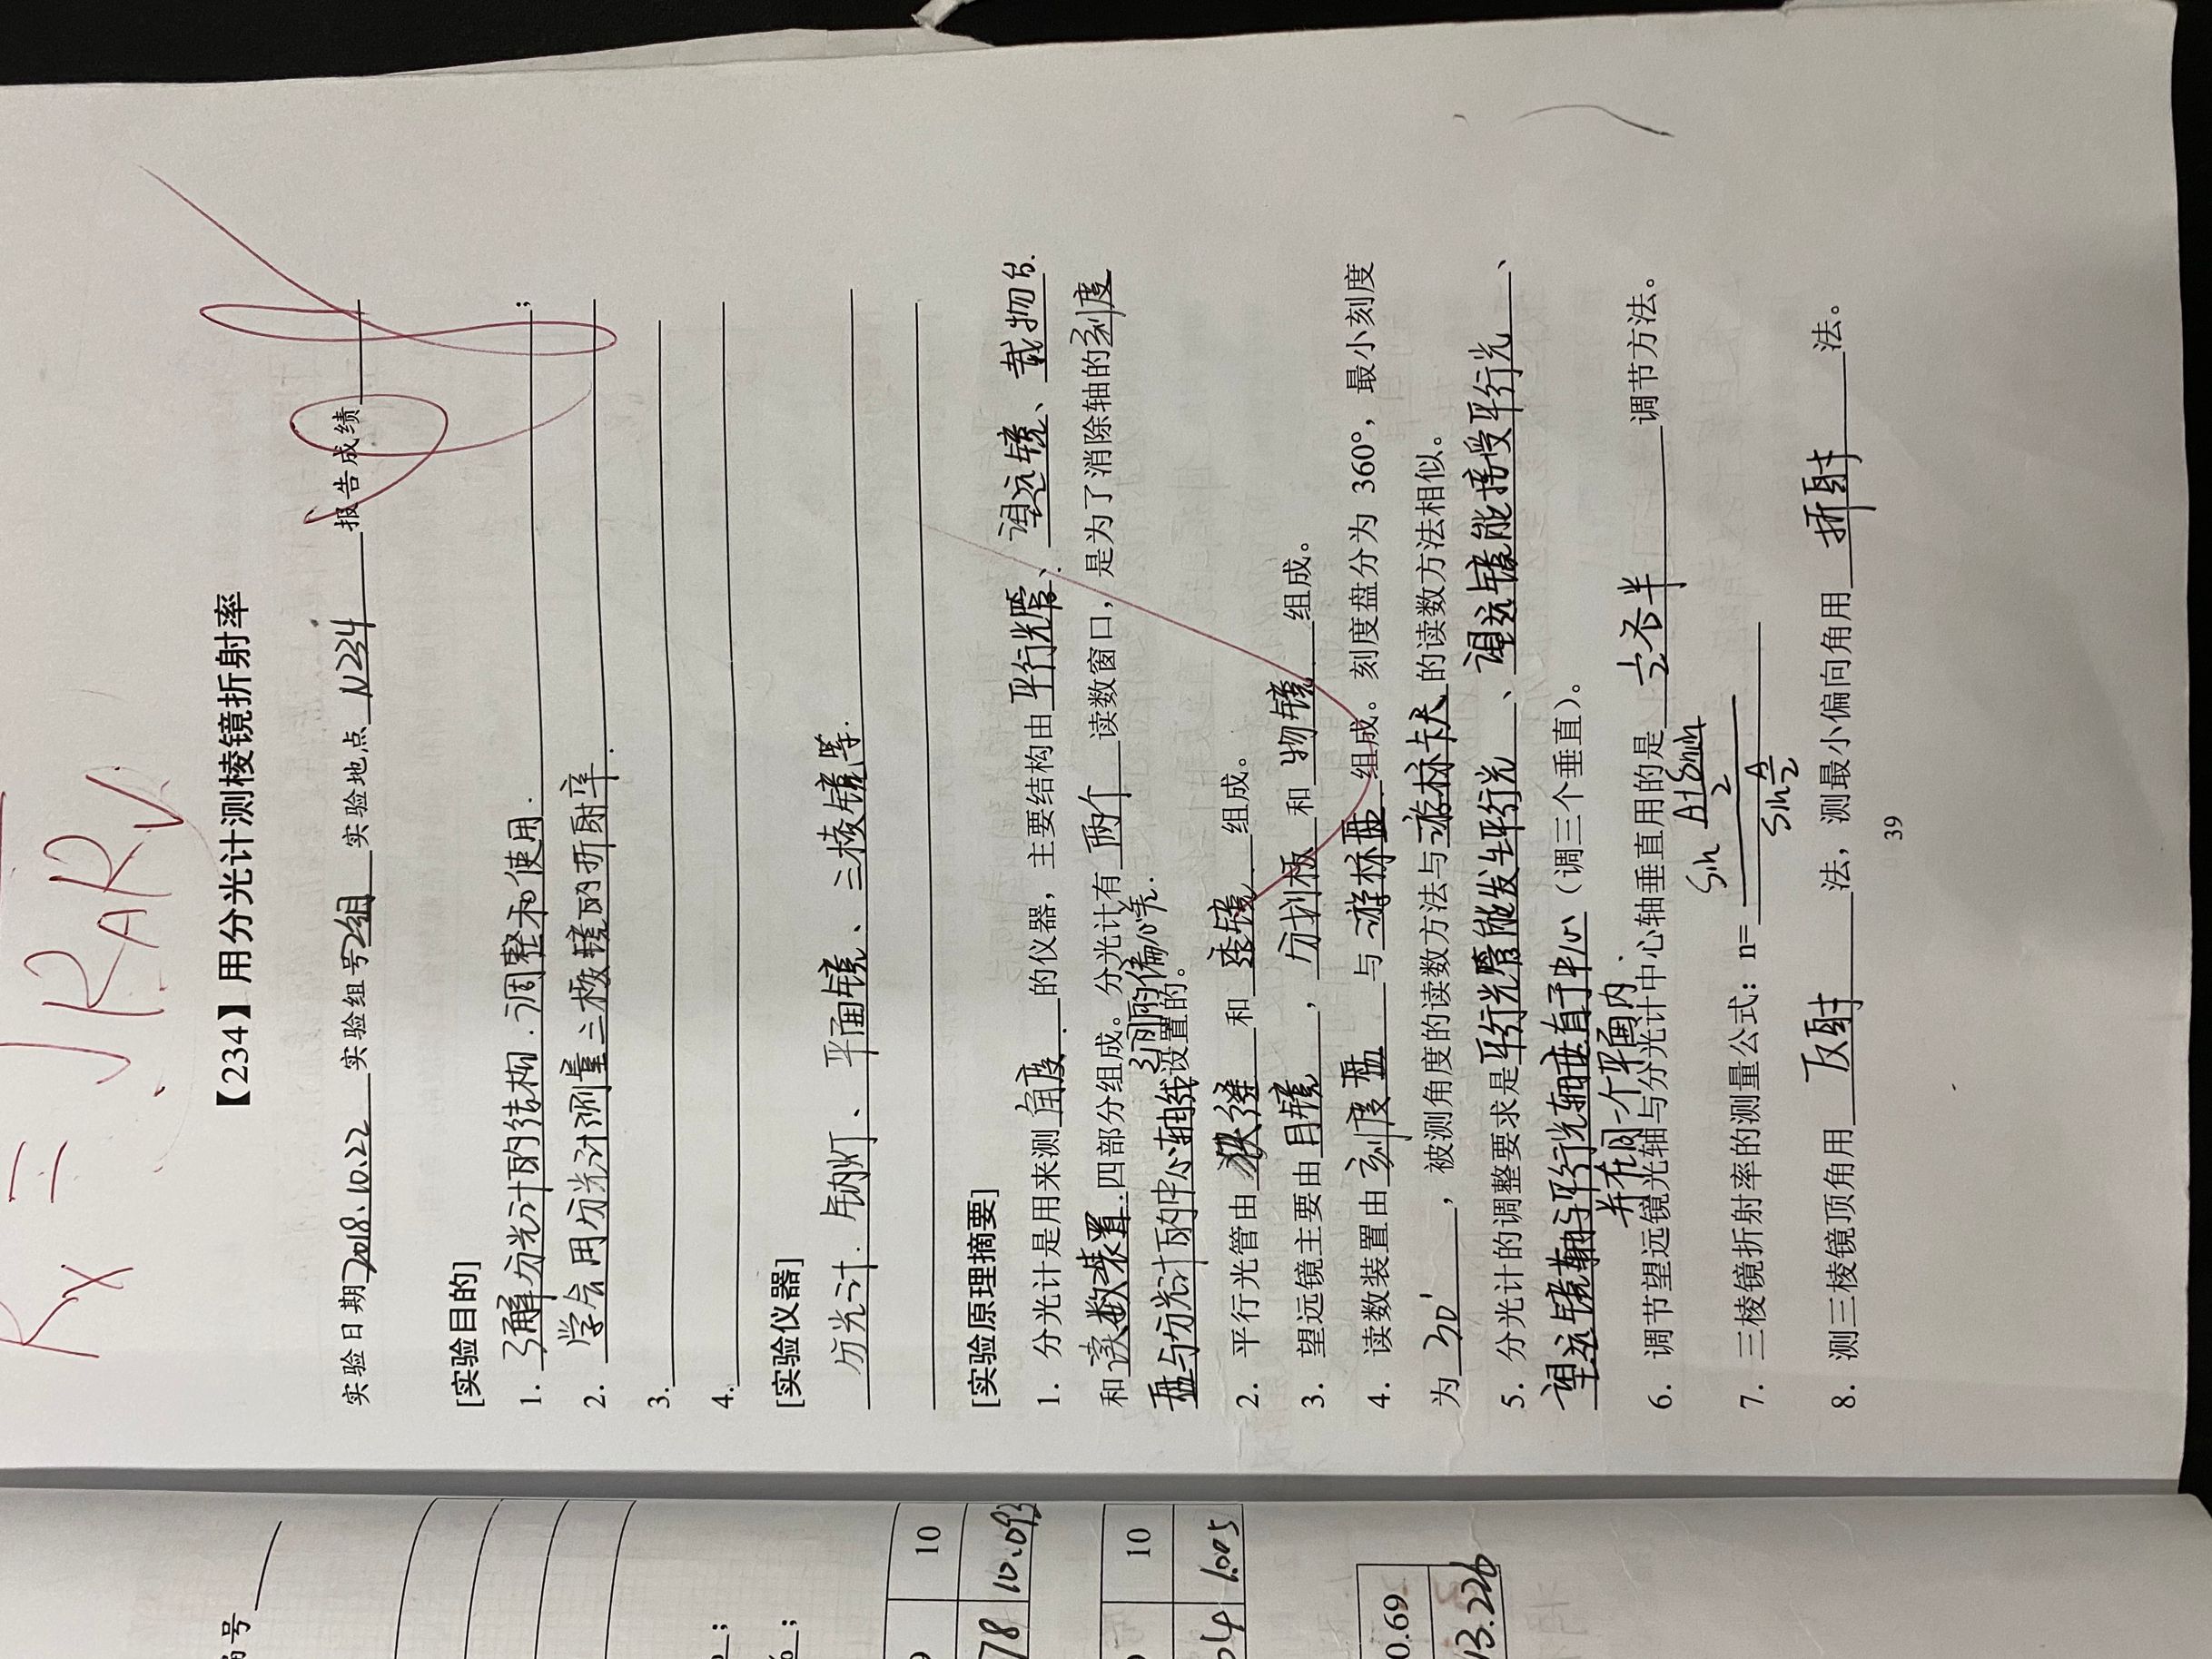 Rx = √RARV
编号
【234】用分光计测棱镜折射率
实验日期2018.10.22 实验组号2组 实验地点 N234 报告成绩
[实验目的]
1. 了解分光计的结构.调整和使用. ;
2. 学会用分光计测量三棱镜的折射率.
3.
4.
% ;
[实验仪器]
分光计. 钠灯、平面镜、三棱镜等.
9 10
78 10.093
[实验原理摘要]
1. 分光计是用来测角度.的仪器，主要结构由平行光管、望远镜、载物台.
和读数装置.四部分组成。分光计有两个读数窗口，是为了消除轴的刻度
盘与分光计的中心轴线之间的偏心差.设置的。
10
04 1.005
2. 平行光管由狭缝和透镜组成。
3. 望远镜主要由目镜，分划板和物镜组成。
4. 读数装置由刻度盘与游标盘组成。刻度盘分为 360°，最小刻度
为30′，被测角度的读数方法与游标卡尺的读数方法相似。
0.69
13.226
5. 分光计的调整要求是平行光管能发生平行光、望远镜能接受平行光、
望远镜轴与平行光轴垂直于中心（调三个垂直）。
并在同一个平面内.
6. 调节望远镜光轴与分光计中心轴垂直用的是½各半调节方法。
7. 三棱镜折射率的测量公式：n= sin (A+δmin)/2 / sin A/2
8. 测三棱镜顶角用反射法，测最小偏向角用折射法。
39